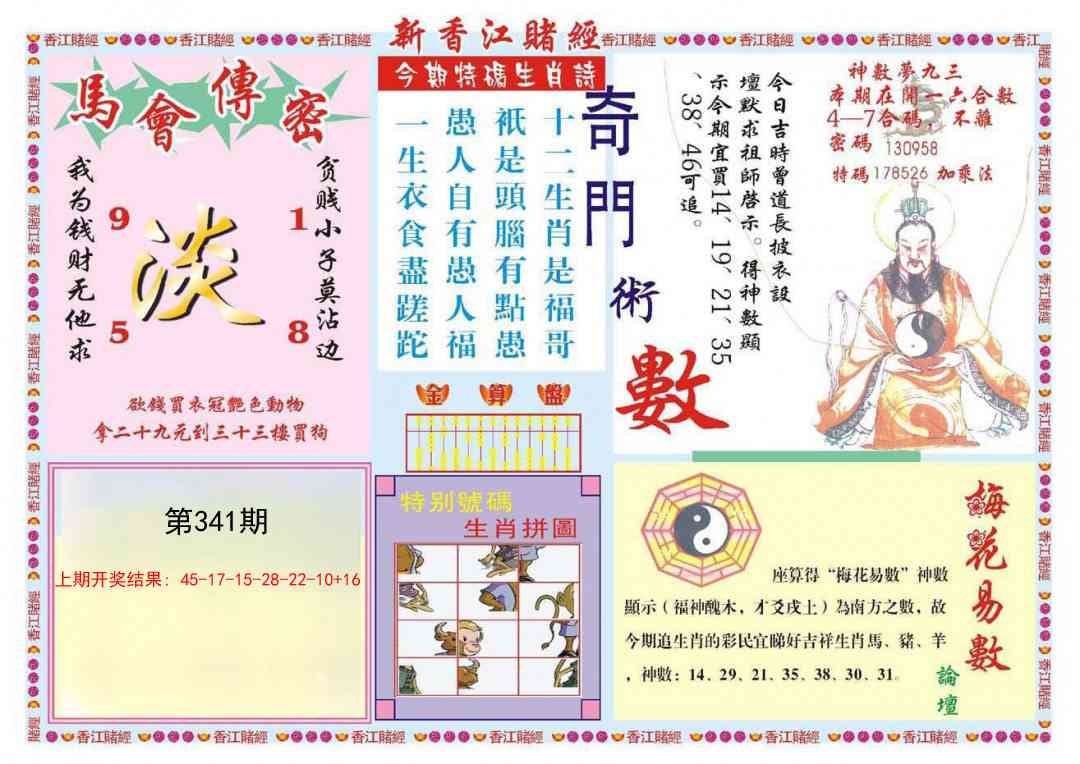 新香江賭經
香江賭經
馬會傳密
我为钱财无他求
贫贱小子莫沾边
9
1
淡
5
8
欲錢買衣冠艷色動物
拿二十九元到三十三樓買狗
今期特碼生肖詩
十二生肖是福哥
衹是頭腦有點愚
愚人自有愚人福
一生衣食盡蹉跎
金算盤
奇門術數
今日吉時曾道長披衣設
壇默求祖師啓示。得神數顯
示今期宜買14、19、21、35
、38、46可追。
神數夢九三
本期在開一六合數
4—7合碼，不離
密碼 130958
特碼178526 加乘法
第341期
上期开奖结果：45-17-15-28-22-10+16
特别號碼
生肖拼圖
梅花易數
論壇
座算得“梅花易數”神數
顯示（福神醜木，才爻戌土）為南方之數，故
今期追生肖的彩民宜睇好吉祥生肖馬、豬、羊
，神數：14、29、21、35、38、30、31。